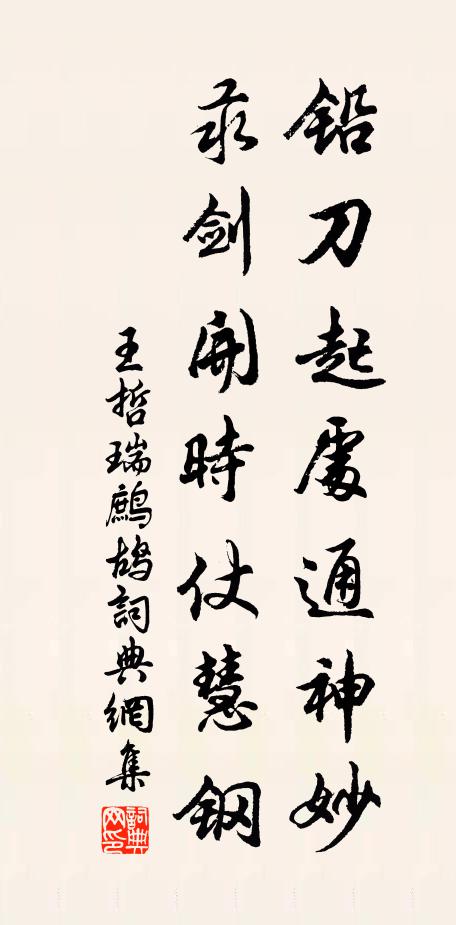 鉛刀起處通神妙
汞劍開時仗慧鋼
王哲瑞鷓鴣詞典網集
詞典网印